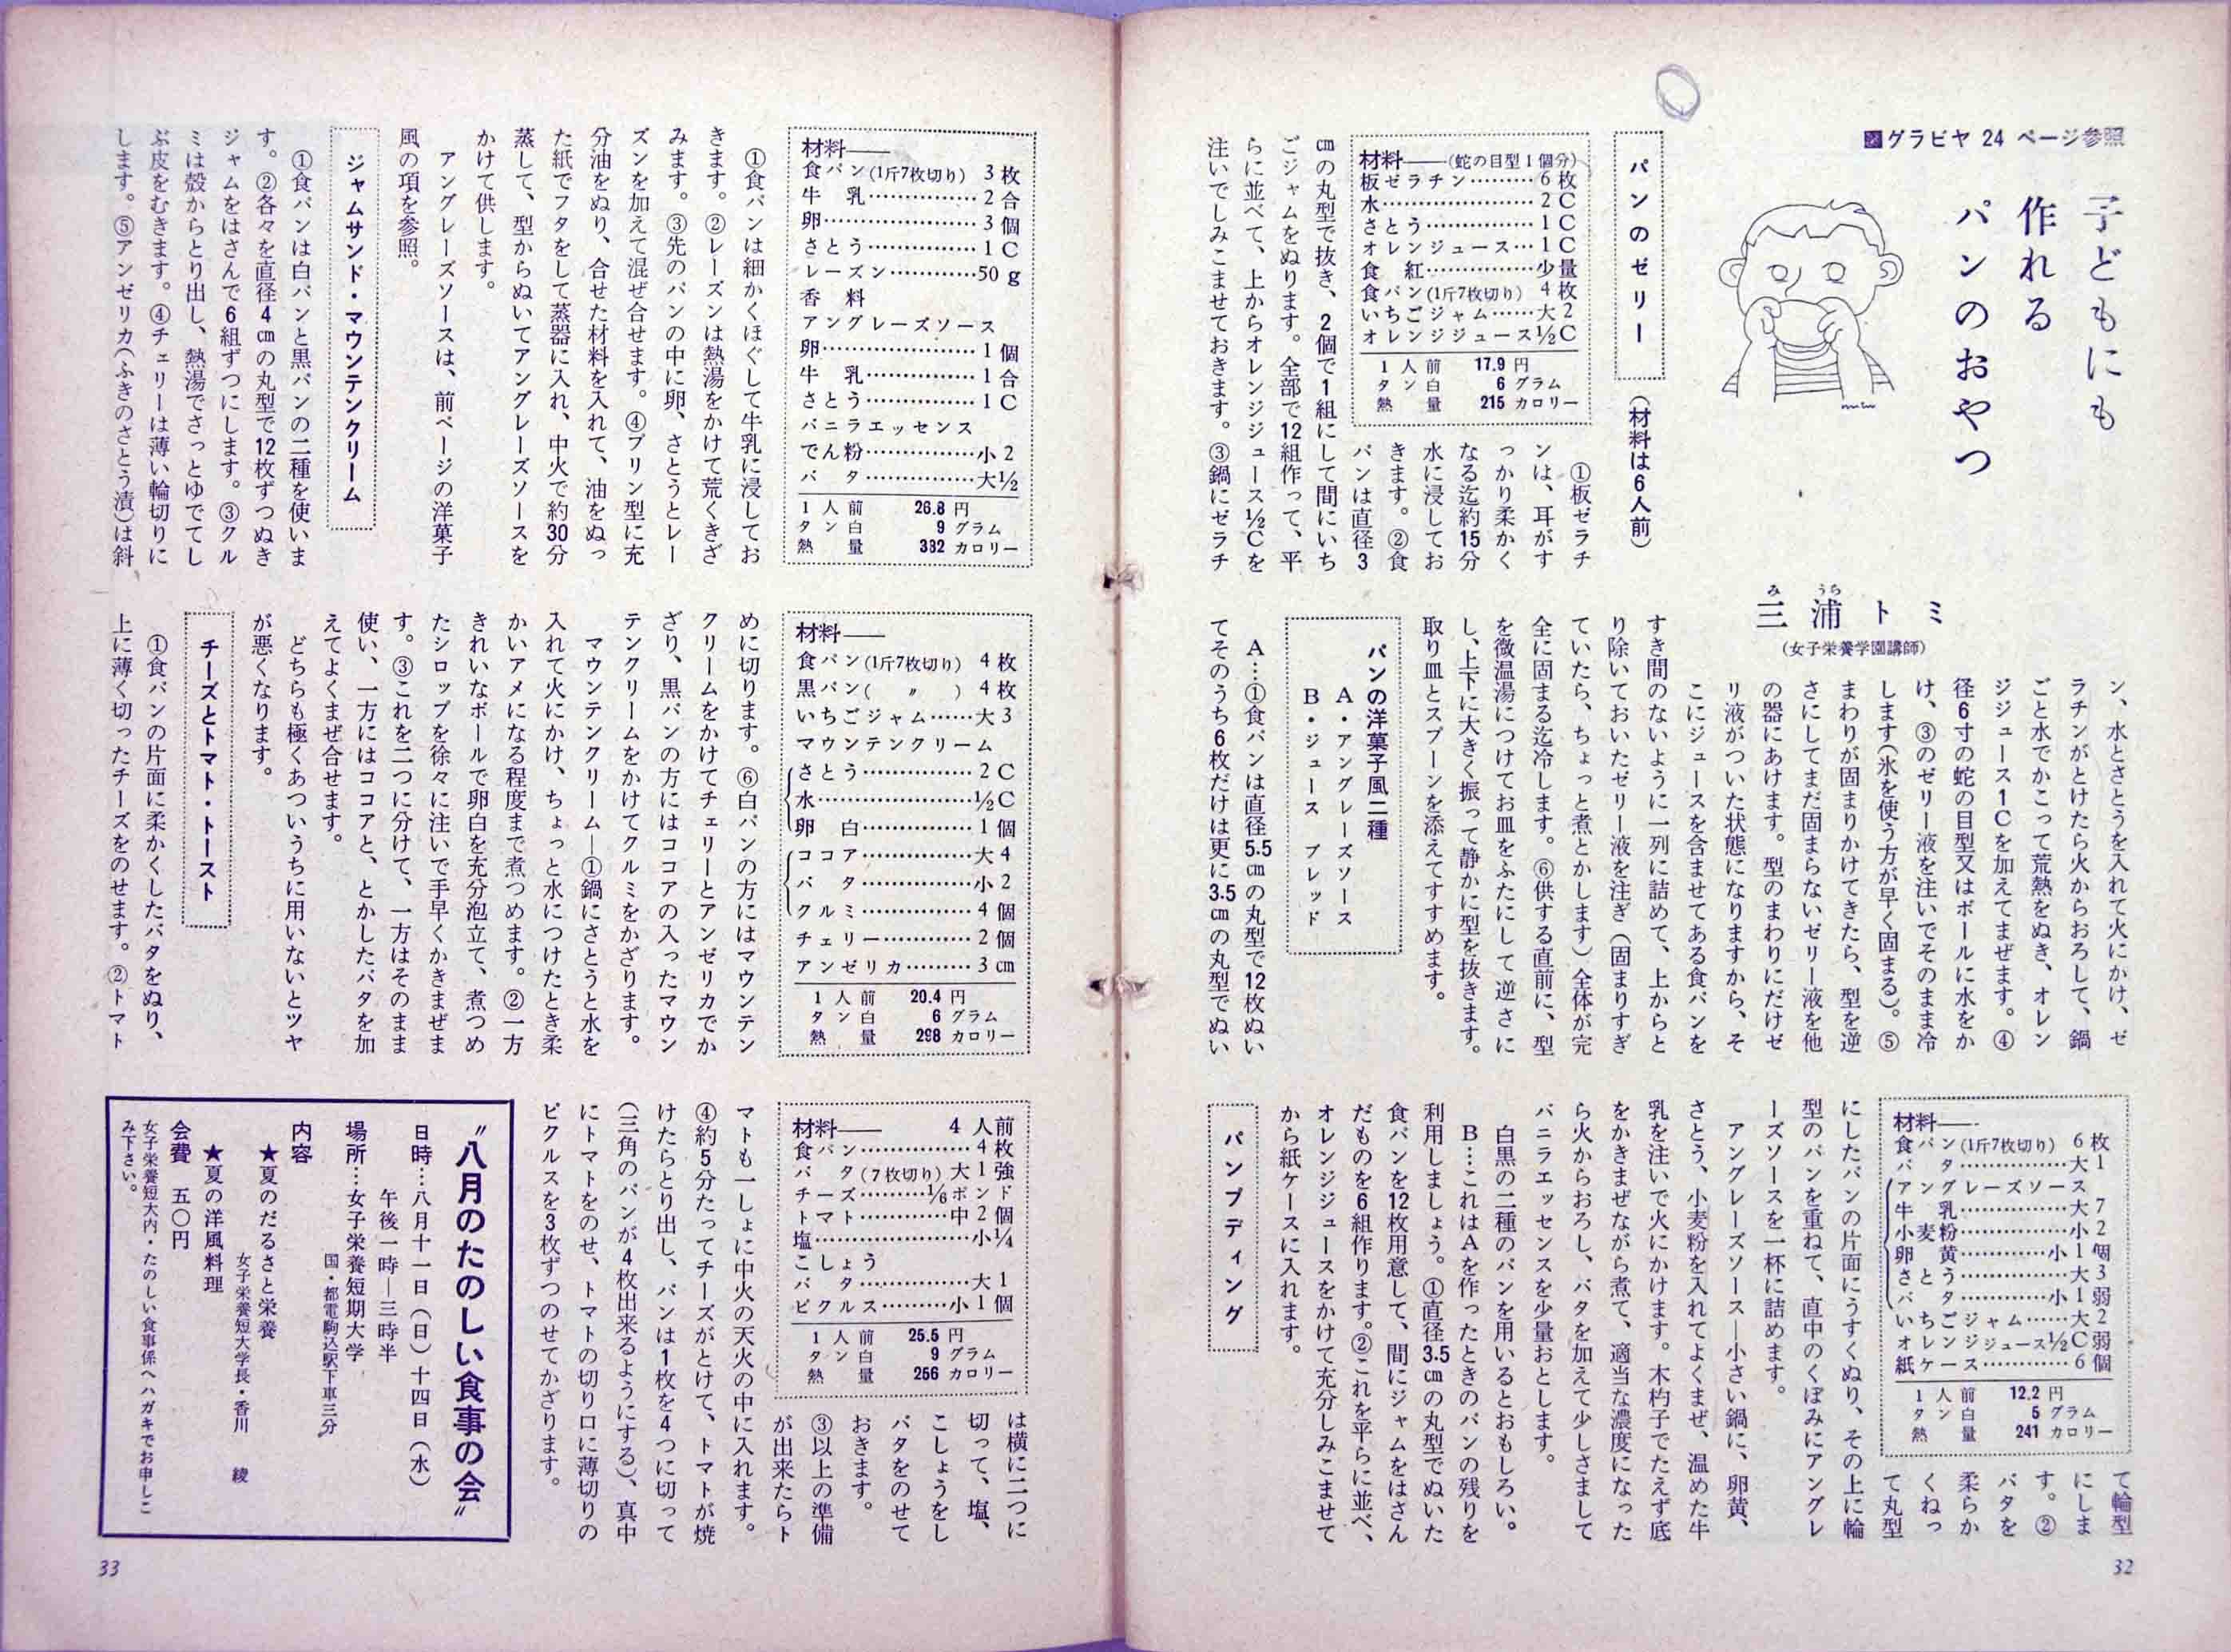 図グラビヤ 24 ページ参照
子どもにも
作れる
パンのおやつ
三浦トミ
み うち
(女子栄養学園講師)
パンのゼリー
(材料は6人前)
材料――(蛇の目型1個分)
板ゼラチン………6枚
水…………………2C
さとう……………1C
オレンジュース…1C
食　紅……………少量
食パン(1斤7枚切り) 4枚
いちごジャム……大2
オレンジジュース½C
1人前 17.9円
タン白 6グラム
熱量 215カロリー
①板ゼラチ
ンは、耳がす
っかり柔かく
なる迄約15分
水に浸してお
きます。②食
パンは直径3
cmの丸型で抜き、2個で1組にして間にいち
ごジャムをぬります。全部で12組作って、平
らに並べて、上からオレンジジュース½Cを
注いでしみこませておきます。③鍋にゼラチ
ン、水とさとうを入れて火にかけ、ゼ
ラチンがとけたら火からおろして、鍋
ごと水でかこって荒熱をぬき、オレン
ジジュース1Cを加えてまぜます。④
径6寸の蛇の目型又はボールに水をか
け、③のゼリー液を注いでそのまま冷
します(氷を使う方が早く固まる)。⑤
まわりが固まりかけてきたら、型を逆
さにしてまだ固まらないゼリー液を他
の器にあけます。型のまわりにだけゼ
リ液がついた状態になりますから、そ
こにジュースを含ませてある食パンを
すき間のないように一列に詰めて、上からと
り除いておいたゼリー液を注ぎ(固まりすぎ
ていたら、ちょっと煮とかします)全体が完
全に固まる迄冷します。⑥供する直前に、型
を微温湯につけてお皿をふたにして逆さに
し、上下に大きく振って静かに型を抜きます。
取り皿とスプーンを添えてすすめます。
パンの洋菓子風二種
A・アングレーズソース
B・ジュース ブレッド
A…①食パンは直径5.5cmの丸型で12枚ぬい
てそのうち6枚だけは更に3.5cmの丸型でぬい
材料――
食パン(1斤7枚切り) 6枚
バタ……………大1
アングレーズソース
牛乳……………大7
小麦粉…………小2
卵黄……………小1個
さとう…………大3
バタ……………小1弱
いちごジャム……大2
オレンジジュース½C弱
紙ケース…………6個
1人前 12.2円
タン白 5グラム
熱量 241カロリー
て輪型
にしま
す。②
バタを
柔らか
くねっ
て丸型
にしたパンの片面にうすくぬり、その上に輪
型のパンを重ねて、直中のくぼみにアングレ
ーズソースを一杯に詰めます。
アングレーズソース―小さい鍋に、卵黄、
さとう、小麦粉を入れてよくまぜ、温めた牛
乳を注いで火にかけます。木杓子でたえず底
をかきまぜながら煮て、適当な濃度になった
ら火からおろし、バタを加えて少しさまして
バニラエッセンスを少量おとします。
白黒の二種のパンを用いるとおもしろい。
B…これはAを作ったときのパンの残りを
利用しましょう。①直径3.5cmの丸型でぬいた
食パンを12枚用意して、間にジャムをはさん
だものを6組作ります。②これを平らに並べ、
オレンジジュースをかけて充分しみこませて
から紙ケースに入れます。
パンプディング
32
材料――
食パン(1斤7枚切り) 3枚
牛　乳……………2合
卵…………………3個
さとう……………1C
レーズン…………50g
香　料
アングレーズソース
卵…………………1個
牛　乳……………1合
さとう……………1C
バニラエッセンス
でん粉……………小2
バ　タ……………大½
1人前 26.8円
タン白 9グラム
熱量 332カロリー
①食パンは細かくほぐして牛乳に浸してお
きます。②レーズンは熱湯をかけて荒くきざ
みます。③先のパンの中に卵、さとうとレー
ズンを加えて混ぜ合せます。④プリン型に充
分油をぬり、合せた材料を入れて、油をぬっ
た紙でフタをして蒸器に入れ、中火で約30分
蒸して、型からぬいてアングレーズソースを
かけて供します。
アングレーズソースは、前ページの洋菓子
風の項を参照。
ジャムサンド・マウンテンクリーム
①食パンは白パンと黒パンの二種を使いま
す。②各々を直径4cmの丸型で12枚ずつぬき
ジャムをはさんで6組ずつにします。③クル
ミは殻からとり出し、熱湯でさっとゆでてし
ぶ皮をむきます。④チェリーは薄い輪切りに
します。⑤アンゼリカ(ふきのさとう漬)は斜
材料――
食パン(1斤7枚切り) 4枚
黒パン( 〃 ) 4枚
いちごジャム……大3
マウンテンクリーム
さとう……………2C
水…………………½C
卵　白……………1個
ココア……………大4
バ　タ……………小2
クルミ……………4個
チェリー…………2個
アンゼリカ………3cm
1人前 20.4円
タン白 6グラム
熱量 298カロリー
めに切ります。⑥白パンの方にはマウンテン
クリームをかけてチェリーとアンゼリカでか
ざり、黒パンの方にはココアの入ったマウン
テンクリームをかけてクルミをかざります。
マウンテンクリーム―①鍋にさとうと水を
入れて火にかけ、ちょっと水につけたとき柔
かいアメになる程度まで煮つめます。②一方
きれいなボールで卵白を充分泡立て、煮つめ
たシロップを徐々に注いで手早くかきまぜま
す。③これを二つに分けて、一方はそのまま
使い、一方にはココアと、とかしたバタを加
えてよくまぜ合せます。
どちらも極くあついうちに用いないとツヤ
が悪くなります。
チーズとトマト・トースト
①食パンの片面に柔かくしたバタをぬり、
上に薄く切ったチーズをのせます。②トマト
材料―― 4人前
食パン……………4枚
バタ(7枚切り)大1強
チーズ………⅙ポンド
トマト…………中2個
塩………………小¼
こしょう
バタ……………大1
ピクルス………小1個
1人前 25.5円
タン白 9グラム
熱量 256カロリー
は横に二つに
切って、塩、
こしょうをし
バタをのせて
おきます。
③以上の準備
が出来たらト
マトも一しょに中火の天火の中に入れます。
④約5分たってチーズがとけて、トマトが焼
けたらとり出し、パンは1枚を4つに切って
(三角のパンが4枚出来るようにする)、真中
にトマトをのせ、トマトの切り口に薄切りの
ピクルスを3枚ずつのせてかざります。
〝八月のたのしい食事の会〟
日時…八月十一日(日)十四日(水)
午後一時―三時半
場所…女子栄養短期大学
国・都電駒込駅下車三分
内容
★夏のだるさと栄養
女子栄養短大学長・香川　綾
★夏の洋風料理
会費 五〇円
女子栄養短大内・たのしい食事係へハガキでお申しこ
み下さい。
33